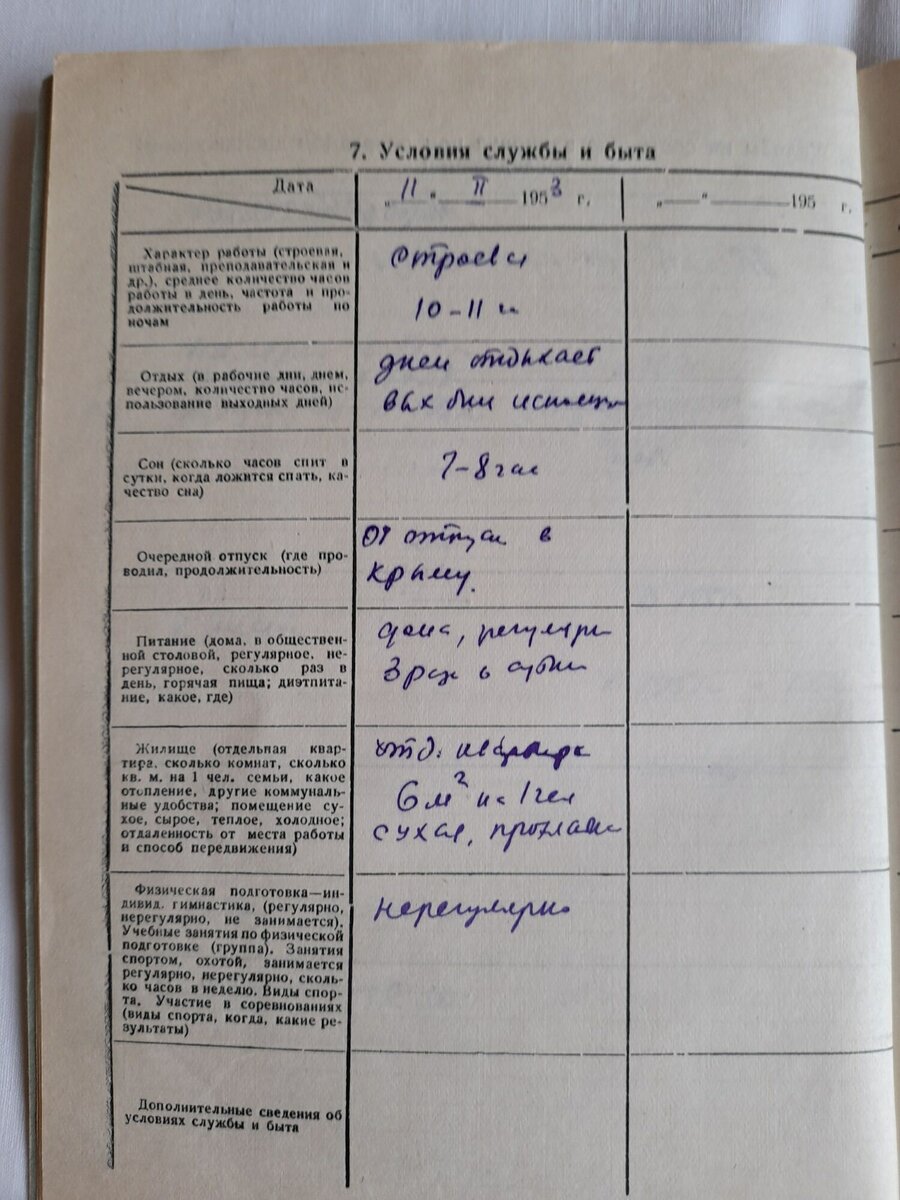 7. Условия службы и быта
Дата
„ 11 “ II 1953 г.
„ “ 195 г.
Характер работы (строевая,
штабная, преподавательская и
др.), среднее количество часов
работы в день, частота и про-
должительность работы по
ночам
Строевая
10–11 ч
Отдых (в рабочие дни, днем,
вечером, количество часов, ис-
пользование выходных дней)
днем отдыхает
вых дни
Сон (сколько часов спит в
сутки, когда ложится спать, ка-
чество сна)
7–8 час
Очередной отпуск (где про-
водил, продолжительность)
в
Крыму.
Питание (дома, в обществен-
ной столовой, регулярное, не-
регулярное, сколько раз в
день, горячая пища; диэтпита-
ние, какое, где)
дома, регулярн
3 раза в сутки
Жилище (отдельная квар-
тира, сколько комнат, сколько
кв. м. на 1 чел. семьи, какое
отопление, другие коммуналь-
ные удобства; помещение су-
хое, сырое, теплое, холодное;
отдаленность от места работы
и способ передвижения)
отд. квартира
6 м² на 1 чел
сухая,
Физическая подготовка—ин-
дивид. гимнастика, (регулярно,
нерегулярно, не занимается).
Учебные занятия по физической
подготовке (группа). Занятия
спортом, охотой, занимается
регулярно, нерегулярно, сколь-
ко часов в неделю. Виды спор-
та. Участие в соревнованиях
(виды спорта, когда, какие ре-
зультаты)
нерегулярно
Дополнительные сведения об
условиях службы и быта